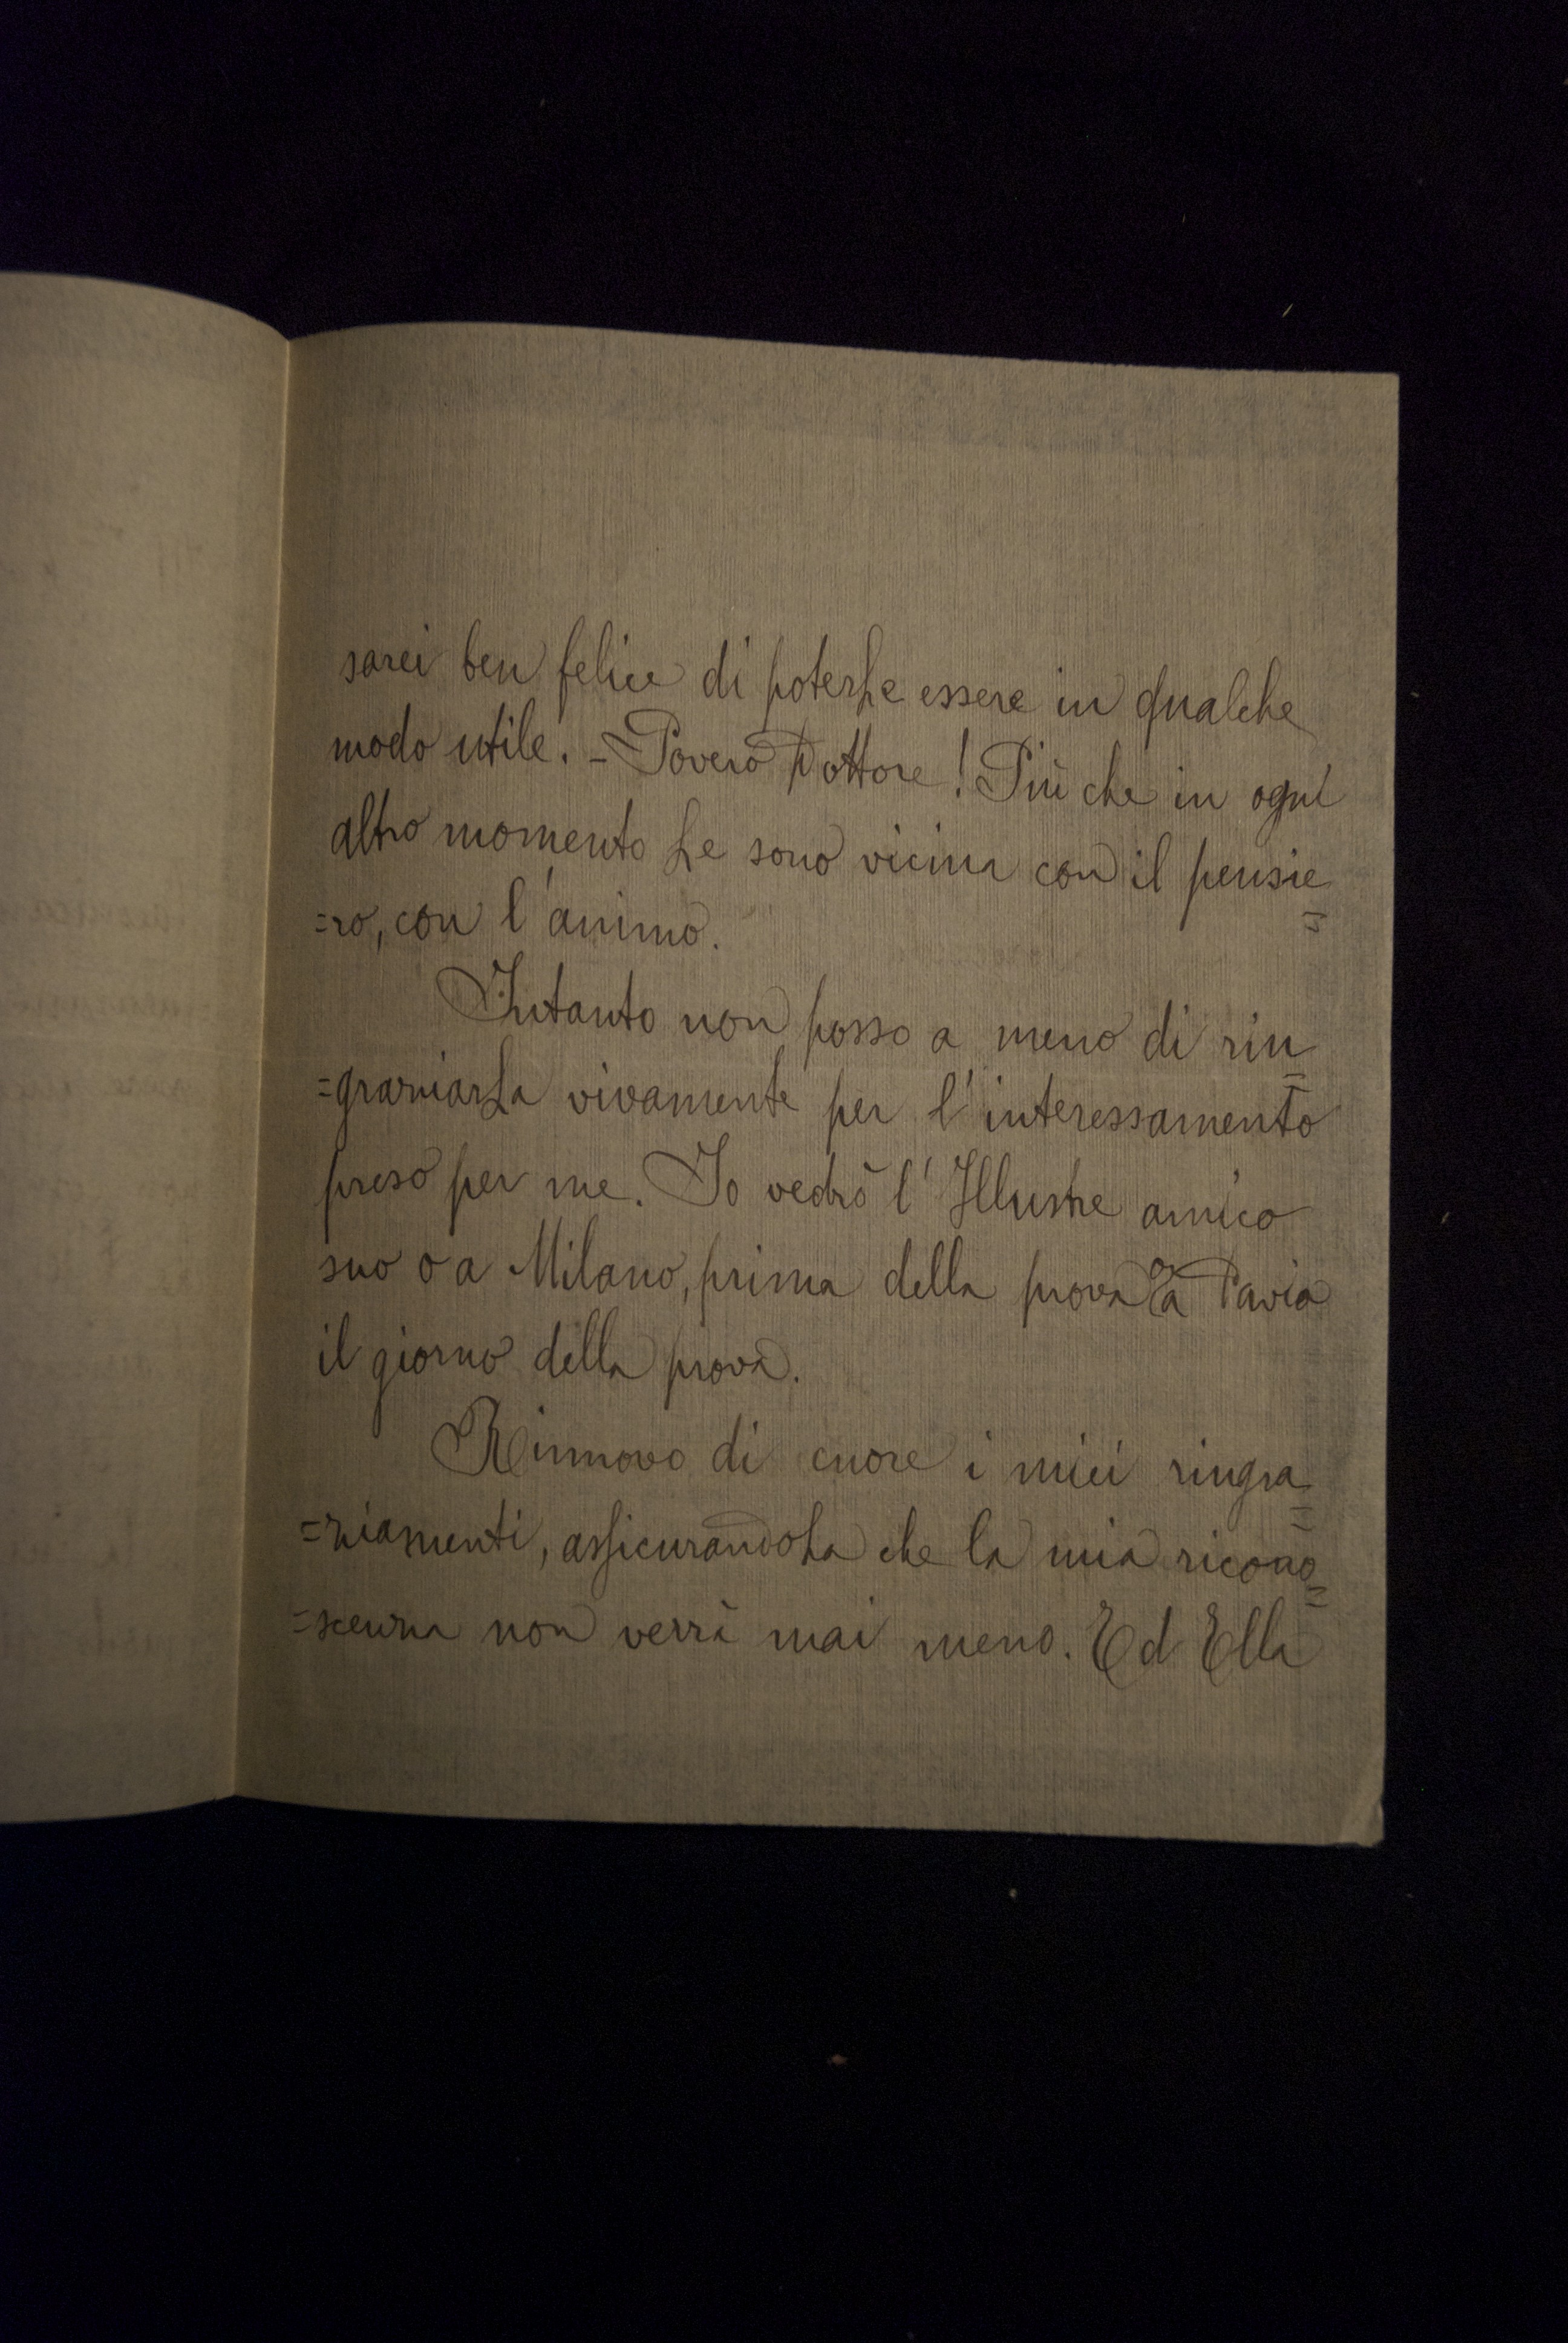 sarei ben felice di poterLe essere in qualche
modo utile. - Povero Dottore! Più che in ogni
altro momento Le sono vicina con il pensie=
=ro, con l'animo.
Intanto non posso a meno di rin=
=graziarLa vivamente per l'interessamento
preso per me. Io vedrò l'Illustre amico
suo o a Milano, prima della prova o a Pavia
il giorno della prova.
Rinnovo di cuore i miei ringra=
=ziamenti, assicurandoLa che la mia ricono=
=scenza non verrà mai meno. Ed Ella